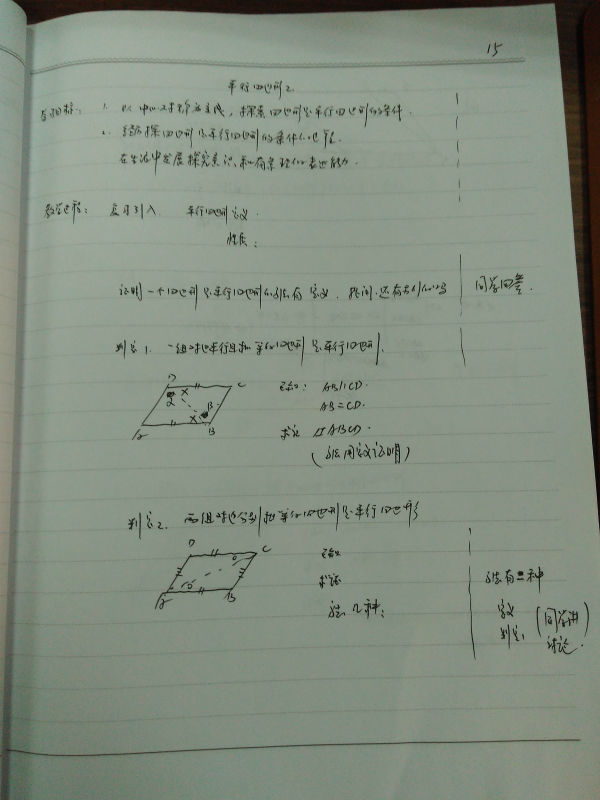 15
平行四边形2
教学目标: 1. 以中心对称为主线, 探索四边形是平行四边形的条件
2. 经历探四边形是平行四边形的条件的过程
在生活中发展探究意识和有条理的表达能力.
教学过程: 复习引入 平行四边形定义.
性质:
证明一个四边形是平行四边形的方法有定义, 提问: 还有其他的吗
同学回答.
判定1. 一组对边平行且相等的四边形是平行四边形.
D C
α β
A B
已知: AB//CD.
AB=CD.
求证 ▱ABCD.
(方法用定义证明)
判定2. 两组对边分别相等的四边形是平行四边形
D C
A B
已知
求证
方法几种:
方法有二种
定义
判定1
(同学讲
讨论.)